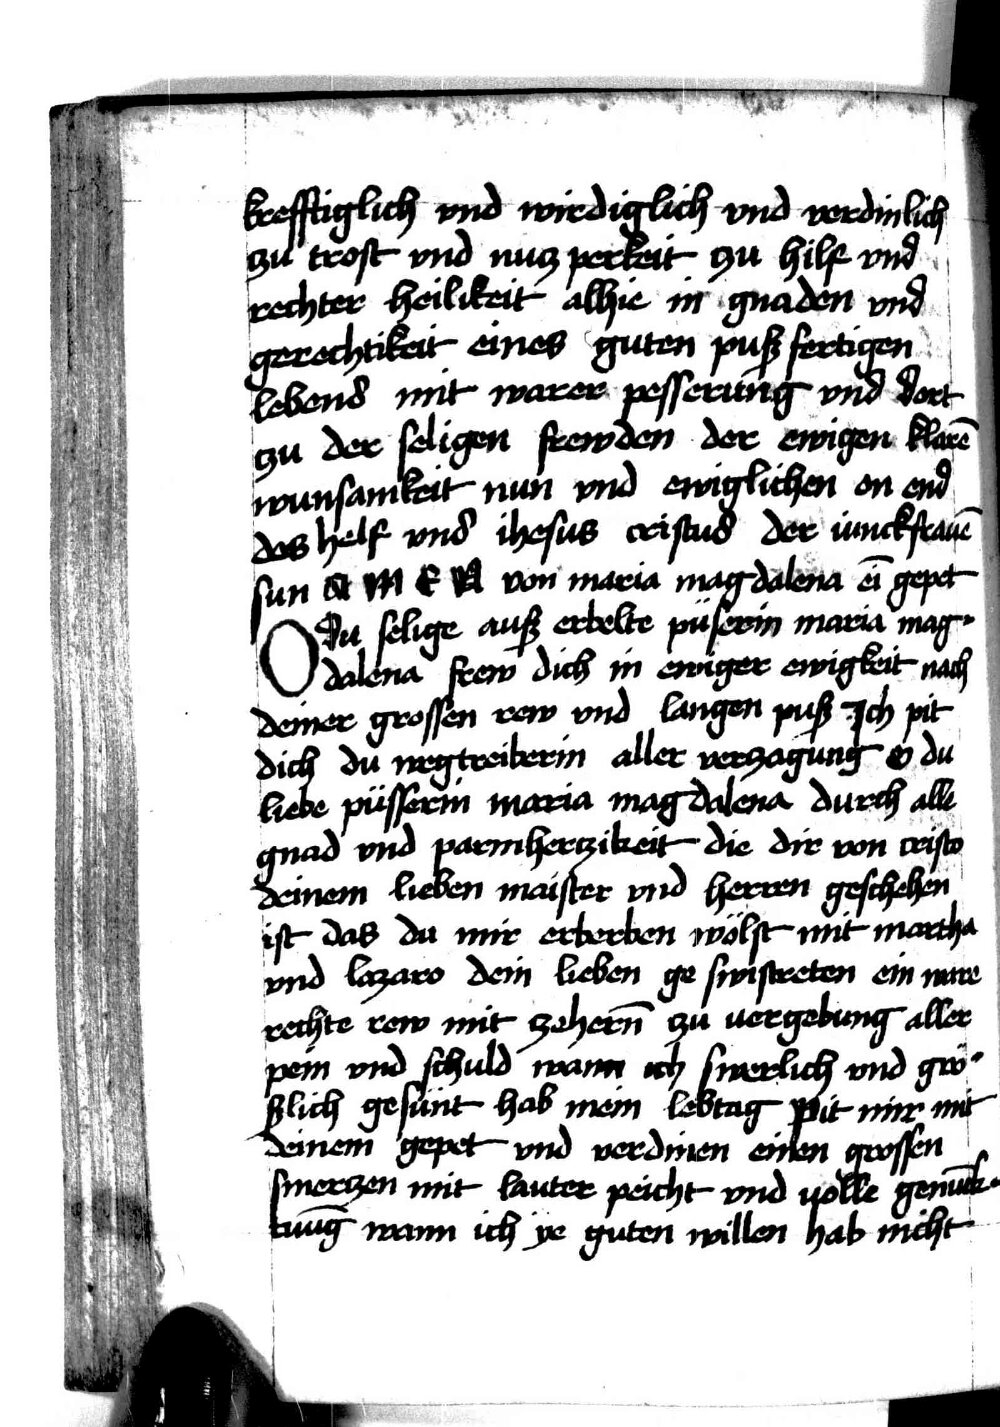 krefftiglich vnd wirdiglich vnd verdinlich
zu trost vnd nucz perkeit zu hilf vnd
rechter heilikeit alhie in gnaden vnd
gerechtikeit eines guten puß fertigen
lebens mit warer pesserung vnd dort
zu der seligen frewden der ewigen klarē
wunsamkeit nun vnd ewiglichen on end
das helf vns ihesus cristus der iunckfrauē
sun A M E N von maria magdalena ei͞ gepet
O du selige auß erbelte püserin maria mag
dalena frew dich in ewiger ewigkeit nach
deiner grossen rew vnd langen puß Ich pit
dich du wegtreiberin aller verzagung O du
liebe püsserin maria magdalena durch alle
gnad vnd parmherczikeit die dir von cristo
deinem lieben maister vnd herren geschehen
ist das du mir erberben wölst mit martha
vnd lazaro dein lieben ge swistreten ein ware
rechte rew mit zehern̄ zu vergebung aller
pein vnd schuld wann ich swerlich vnd grö
ßlich gesünt hab mein lebtag Pit mir mit
deinem gepet vnd verdinen einen grossen
smerczen mit lauter peicht vnd volle
wann ich ye guten willen hab nicht